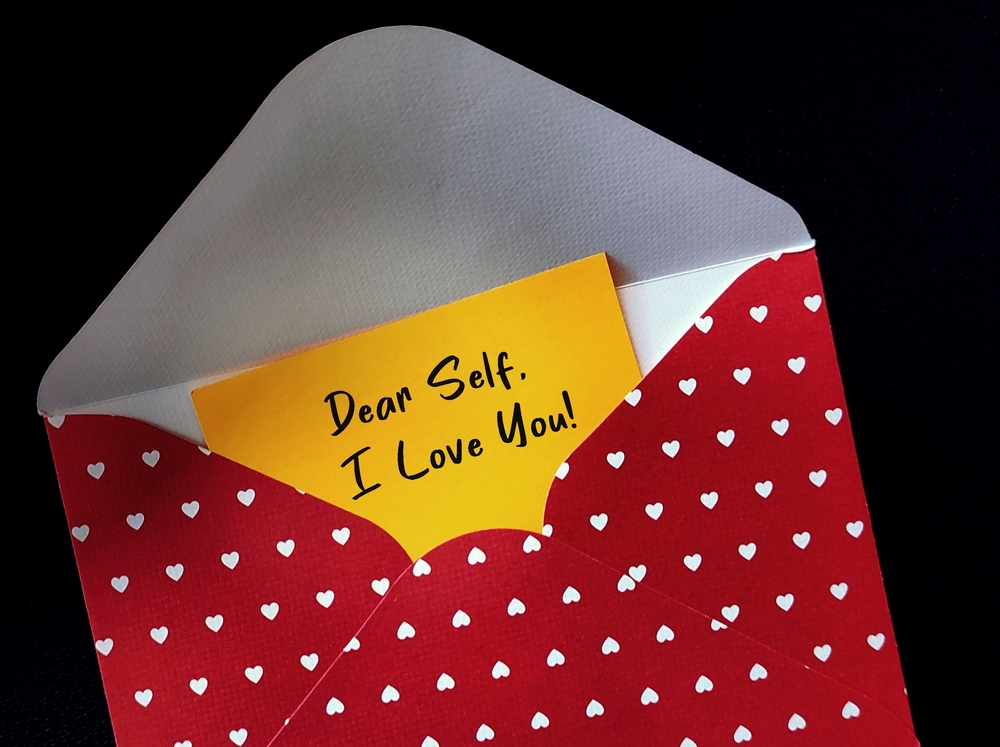 Dear Self,
I Love You!